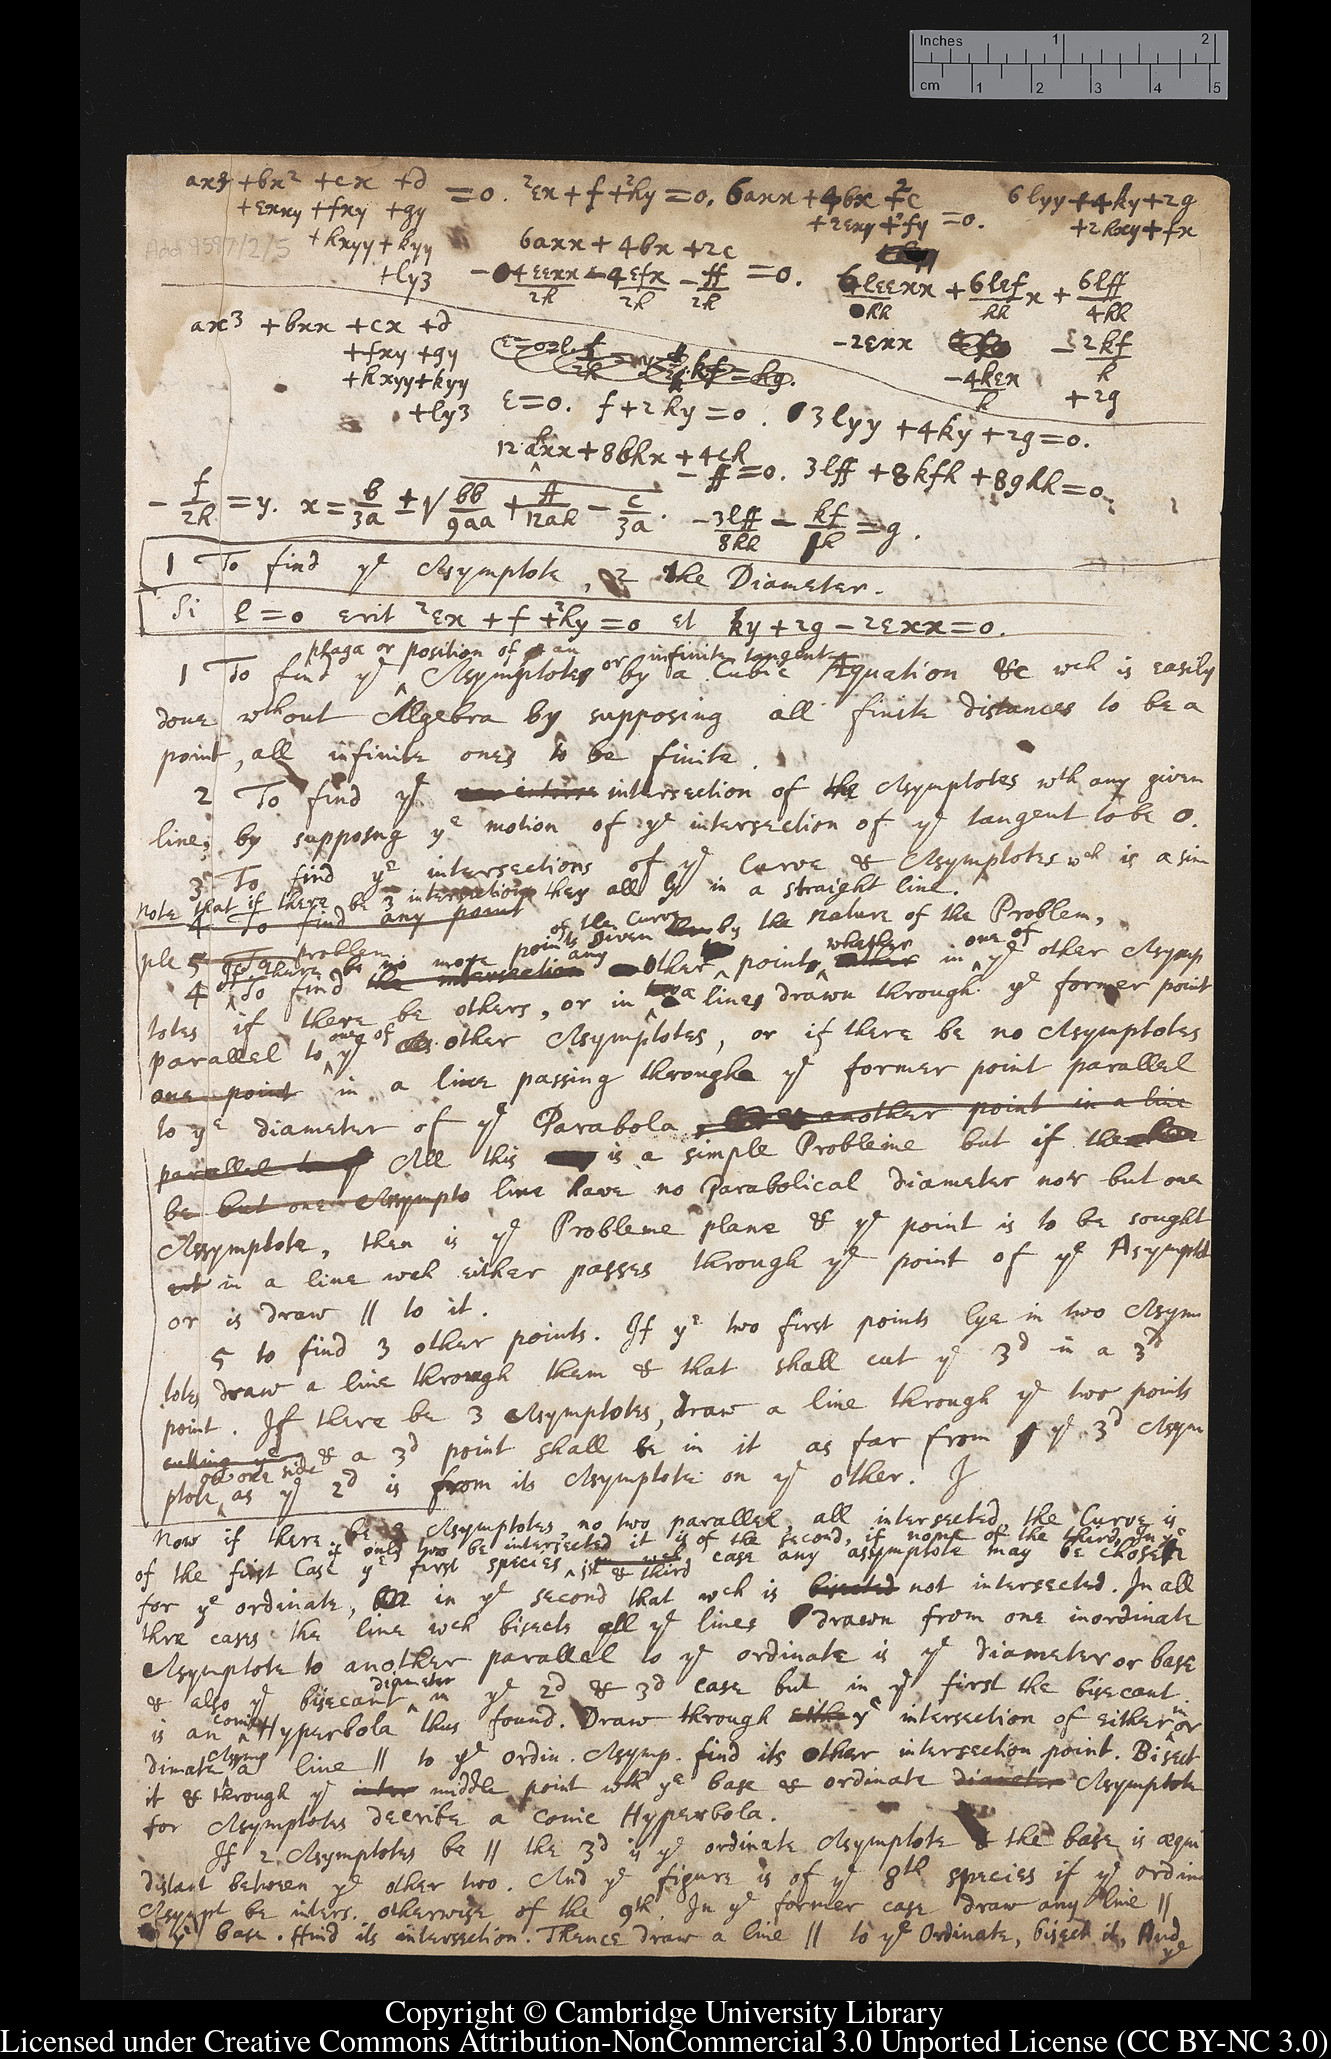 Inches 1 2
cm 1 2 3 4 5
ax3 + bx2 + cx + d
+ exxy + fxy + gy
+ hxyy + kyy
+ ly3
= 0. 2ex + f + 2hy = 0. 6axx + 4bx + 2c
+ 2exy + 2fy = 0.
6lyy + 4ky + 2g
+ 2hxy + fx
Add 9597/2/5
6axx + 4bx + 2c
- 4eexx/2h - 4efx/2h - ff/2h = 0.
6leexx/hh + 6lef/hh x + 6lff/4hh
- 2exx
- 4kex/h
- 2kf/h
+ 2g
ax3 + bxx + cx + d
+ fxy + gy
+ hxyy + kyy
+ ly3
e=0. f + 2hy = 0. 3lyy + 4ky + 2g = 0.
12ahxx + 8bhx + 4ch
- ff = 0. 3lff + 8kfh + 8ghh = 0.
- f/2h = y. x = b/3a ± √ bb/9aa + ff/12ah - c/3a. - 3lff/8hh - kf/h = g.
1 To find ye Asymptote, 2 the Diameter.
Si l=0 erit 2ex + f + 2hy = 0 et ky + 2g - 2exx = 0.
plaga or position of an or infinite tangent
1 To find ye Asymptotes by a Cubic Æquation &c wch is easily
done wthout Algebra by supposing all finite distances to be a
point, all infinite ones to be finite.
2 To find ye intersection of the Asymptotes wth any given
line, by supposing ye motion of ye intersection of ye tangent to be 0.
3 To find ye intersections of ye Curve & Asymptotes wch is a sim
note that if there be 3 intersections they all ly in a straight line.
4 To find any point
ple 5 To problem
of the Curve given by the nature of the Problem,
If there be no more points any whether one of
4 To find the intersection other points in ye other Asymp
totes if there be others, or in a lines drawn through ye former point
parallel to one of ye other Asymptotes, or if there be no Asymptotes
one point in a line passing through ye former point parallel
to ye diameter of ye Parabola, another point in a line
parallel to ye All this is a simple Probleme but if the
be but one Assympto line have no Parabolical diameter nor but one
Assymptote, then is ye Probleme plane & ye point is to be sought
in a line wch either passes through ye point of ye Asymptot
or is draw || to it.
5 to find 3 other points. If ye two first points lye in two Asymp
totes draw a line through them & that shall cut ye 3d in a 3d
point. If there be 3 Asymptotes, draw a line through ye two points
cutting ye & a 3d point shall be in it as far from ye 3d Assym
on one side
ptote, as ye 2d is from its Asymptote on ye other. If
Now if there be 3 Asymptotes, no two parallel, all intersected, the Curve is
if only two be intersected it is of the second, if none of the third, In ye
of the first Case ye first species 1st & third case any assymptote may be chosen
for ye ordinate, in ye second that wch is bisected not intersected. In all
thre cases the line wch bisects all ye lines drawn from one inordinate
Asymptote to another parallel to ye ordinate is ye diameter or base
& also ye bisecant diameter in ye 2d & 3d case but in ye first the bisecant
is an conic Hyperbola thus found. Draw through ye intersection of either inor
dinate Asymp a line || to ye ordin. Asymp. find its other intersection point. Bisect
it & through ye middle point wth ye base & ordinate diameter Asymptote
for Asymptotes decribe a conic Hyperbola.
If 2 Asymptotes be || the 3d is ye ordinate Asymptote & the base is æqui
distant between ye other two. And ye figure is of ye 8th species if ye ordin
Asympt be inters. otherwise of the 9th. In ye former case draw any line ||
to ye base. ffind its intersection. Thence draw a line || to ye Ordinate, bisect it, And
ye
Copyright © Cambridge University Library
Licensed under Creative Commons Attribution-NonCommercial 3.0 Unported License (CC BY-NC 3.0)